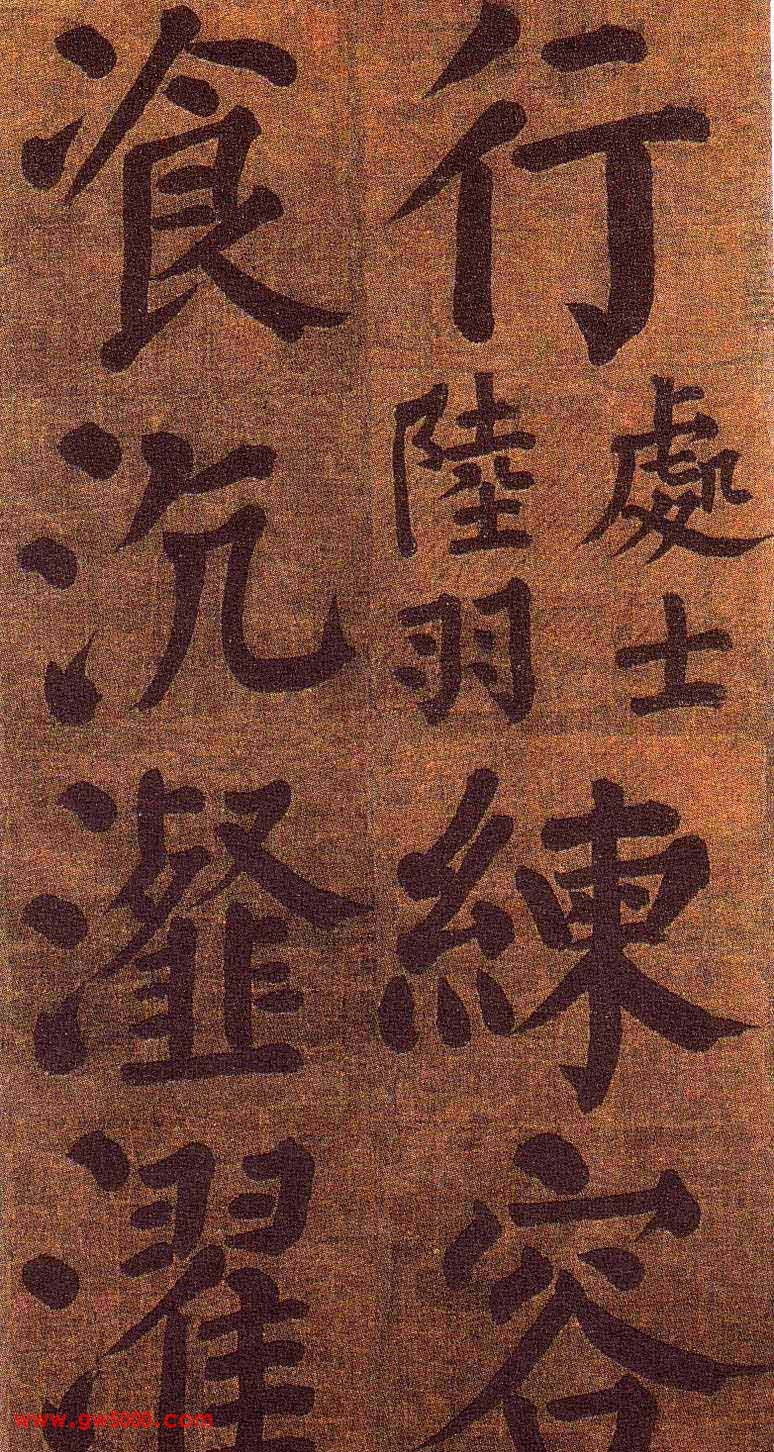 行
處士
陸羽
練容
飡沆瀣濯
www.gw1000.com